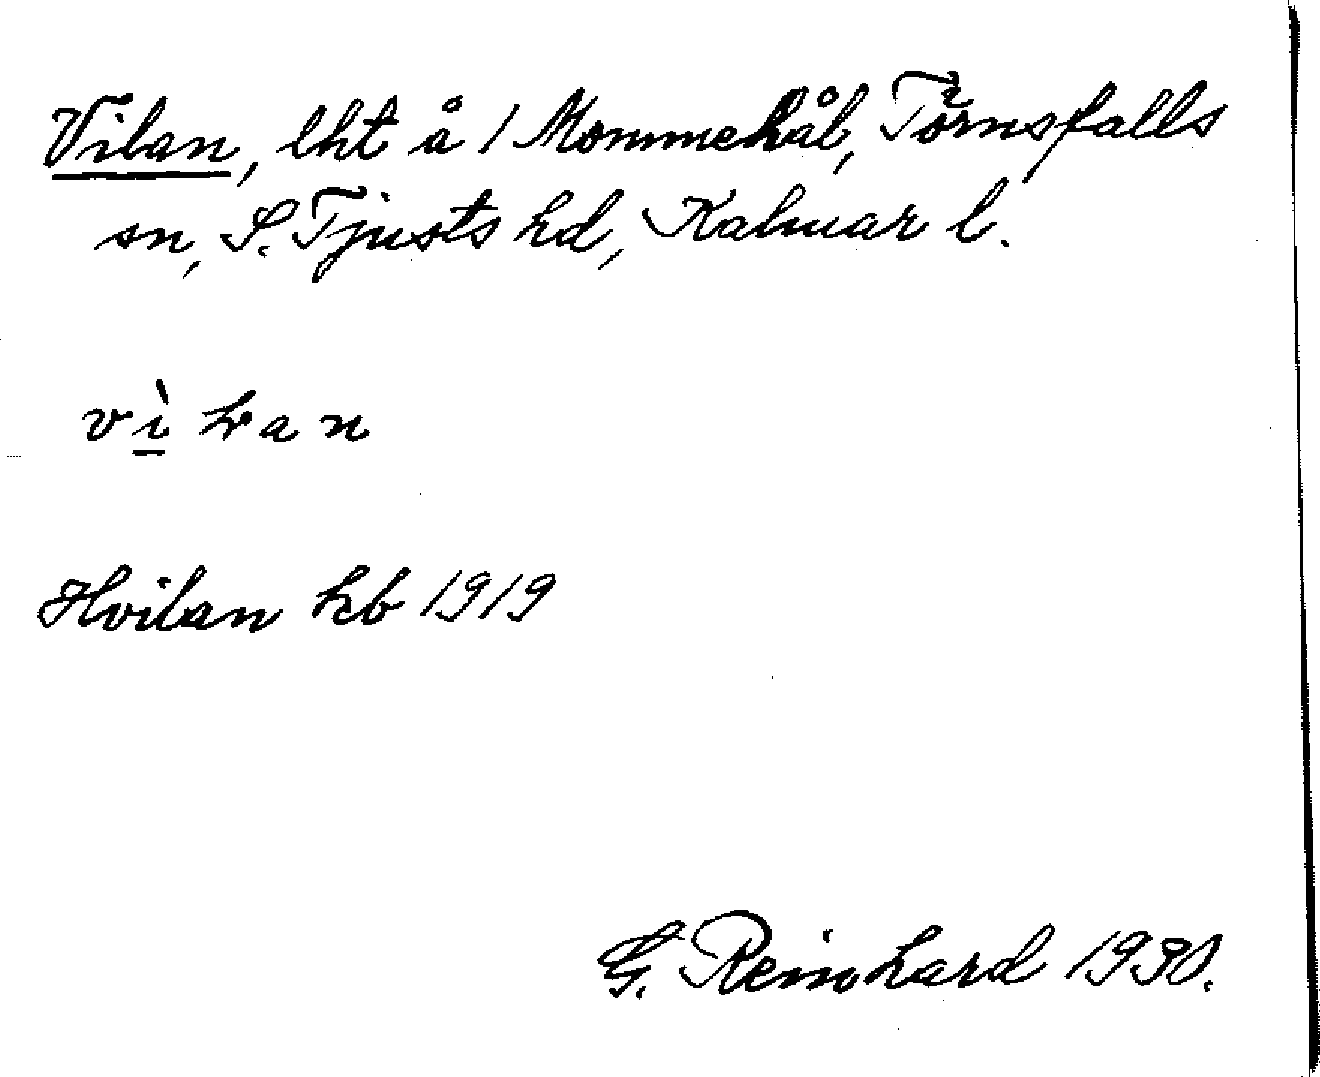 Vilan, lht å 1 Mommehål, Törnsfalls
sn, S. Tjusts hd, Kalmar l.
vìlan
Hvilan kb 1919
G. Reinhard 1930.